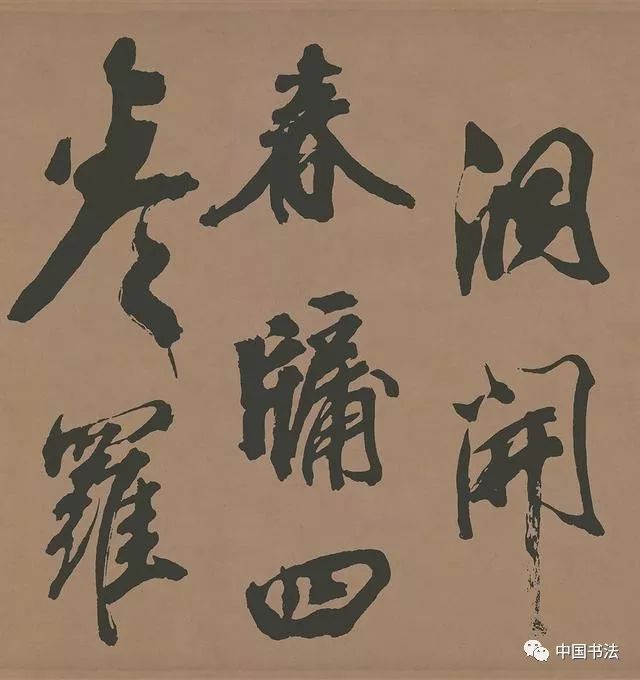 洞開
春牖四
卷羅
中国书法